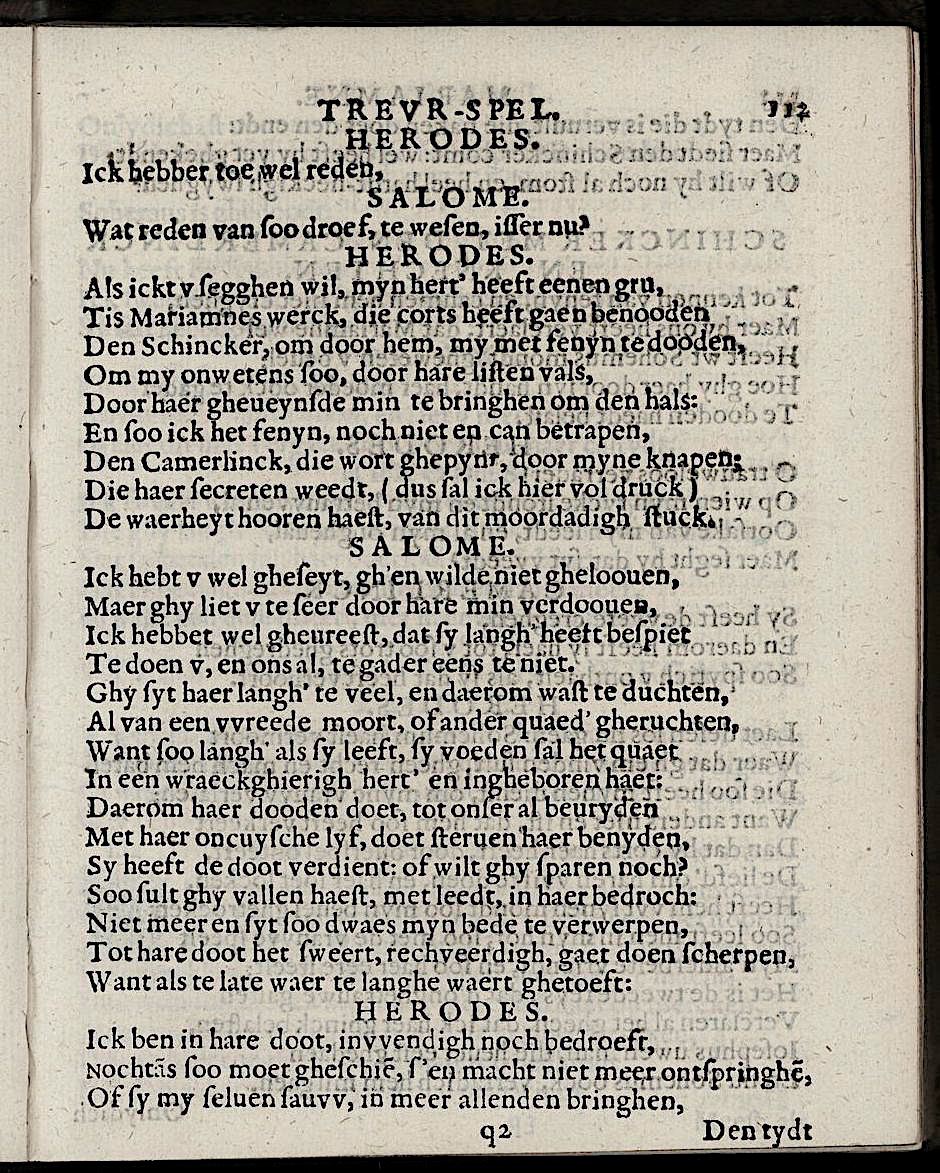 TREVR-SPEL. 112
HERODES.
Ick hebber toe wel reden,
SALOME.
Wat reden van ſoo droef, te weſen, iſſer nu?
HERODES.
Als ickt v ſegghen wil, myn hert' heeft eenen gru,
Tis Mariamnes werck, die corts heeft gaen benooden
Den Schincker, om door hem, my met fenyn te dooden,
Om my onwetens ſoo, door hare liſten vals,
Door haer gheueynſde min te bringhen om den hals:
En ſoo ick het fenyn, noch niet en can betrapen,
Den Camerlinck, die wort ghepynt, door myne knapen;
Die haer ſecreten weedt, ( dus ſal ick hier vol druck )
De waerheyt hooren haeſt, van dit moordadigh ſtuck.
SALOME.
Ick hebt v wel gheſeyt, gh'en wilde niet gheloouen,
Maer ghy liet v te ſeer door hare min verdoouen,
Ick hebbet wel gheureeſt, dat ſy langh' heeft beſpiet
Te doen v, en ons al, te gader eens te niet.
Ghy ſyt haer langh' te veel, en daerom waſt te duchten,
Al van een vvreede moort, of ander quaed' gheruchten,
Want ſoo langh' als ſy leeft, ſy voeden ſal het quaet
In een wraeckghierigh hert' en ingheboren haet:
Daerom haer dooden doet, tot onſer al beuryden
Met haer oncuyſche lyf, doet ſteruen haer benyden,
Sy heeft de doot verdient: of wilt ghy ſparen noch?
Soo ſult ghy vallen haeſt, met leedt, in haer bedroch:
Niet meer en ſyt ſoo dwaes myn bede te verwerpen,
Tot hare doot het ſweert, rechveerdigh, gaet doen ſcherpen,
Want als te late waer te langhe waert ghetoeft:
HERODES.
Ick ben in hare doot, invvendigh noch bedroeft,
Nochtãs ſoo moet gheſchiẽ, ſ'en macht niet meer ontſpringhẽ,
Of ſy my ſeluen ſauvv, in meer allenden bringhen,
q2 Den tydt